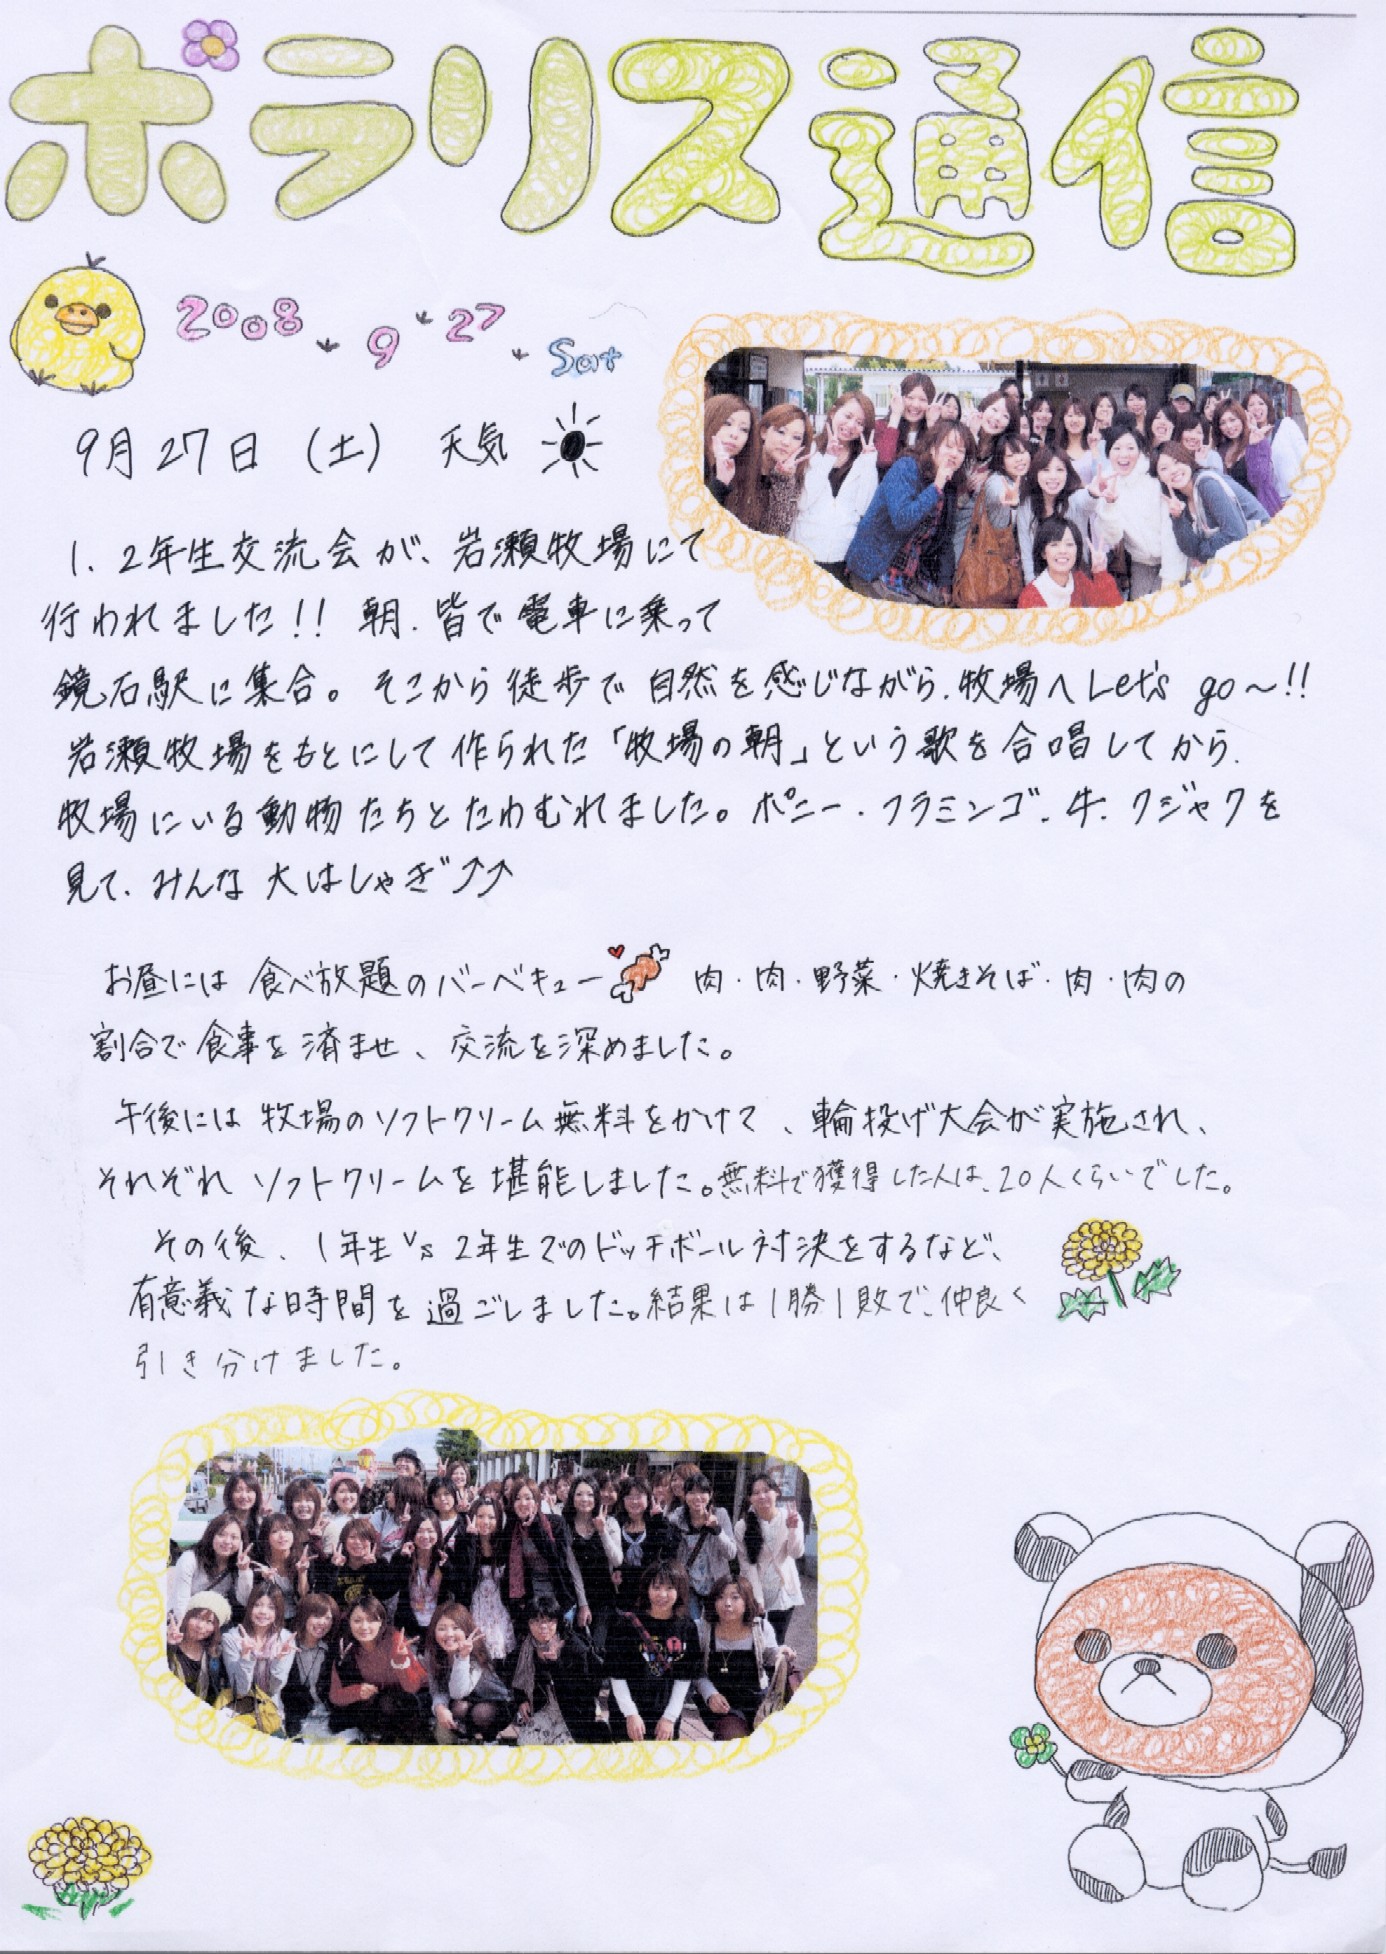 ポラリス通信
2008.9.27.Sat
9月27日(土) 天気
1、2年生交流会が、岩瀬牧場にて
行われました!! 朝、皆で電車に乗って
鏡石駅に集合。そこから徒歩で自然を感じながら、牧場へLet's go〜!!
岩瀬牧場をもとにして作られた「牧場の朝」という歌を合唱してから、
牧場にいる動物たちとたわむれました。ポニー、フラミンゴ、牛、クジャクを
見て、みんな大はしゃぎ↗↗
お昼には食べ放題のバーベキュー 肉・肉・野菜・焼きそば・肉・肉の
割合で食事を済ませ、交流を深めました。
午後には牧場のソフトクリーム無料をかけて、輪投げ大会が実施され、
それぞれソフトクリームを堪能しました。無料で獲得した人は、20人くらいでした。
その後、1年生vs2年生でのドッチボール対決をするなど、
有意義な時間を過ごしました。結果は1勝1敗で、仲良く
引き分けました。